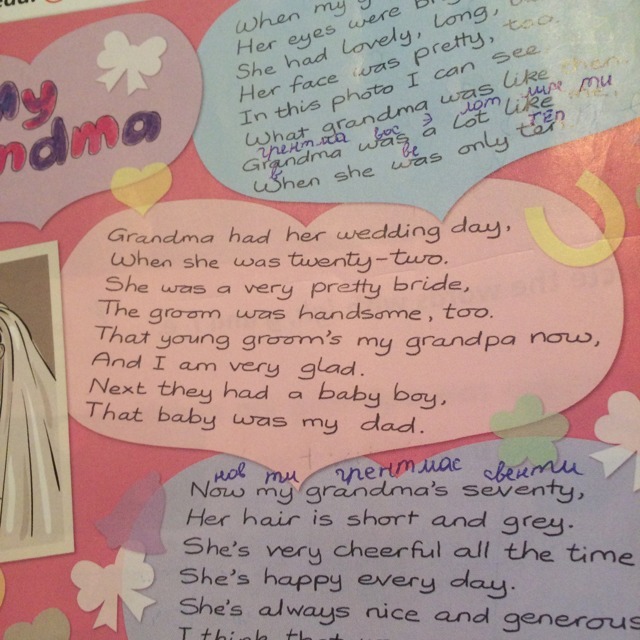 My
ndma
When my
Her eyes were
She had lovely, long,
Her face was pretty, too.
In this photo I can see
What grandma was like then.
грентма вос э лот
Grandma was a lot like
тен
When she was only ten
Grandma had her wedding day,
When she was twenty-two.
She was a very pretty bride,
The groom was handsome, too.
That young groom's my grandpa now,
And I am very glad.
Next they had a baby boy,
That baby was my dad.
нов ти грентмас свенти
Now my grandma's seventy,
Her hair is short and grey.
She's very cheerful all the time
She's happy every day.
She's always nice and generous
I think that